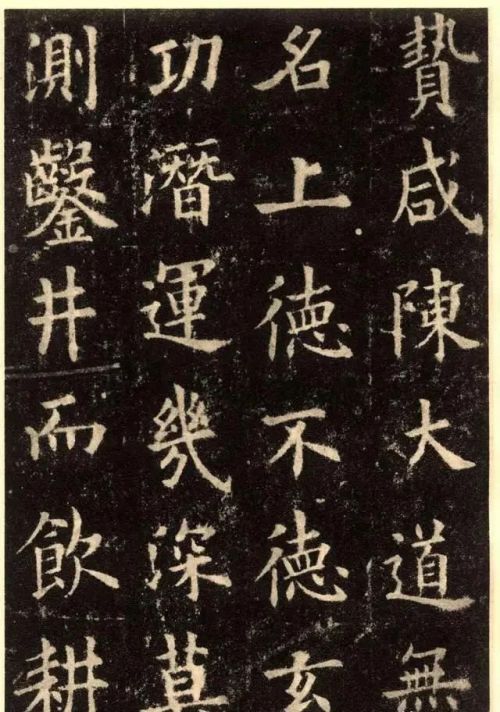 贄咸陳大道無
名上德不德玄
功潛運幾深莫
測鑿井而飲耕